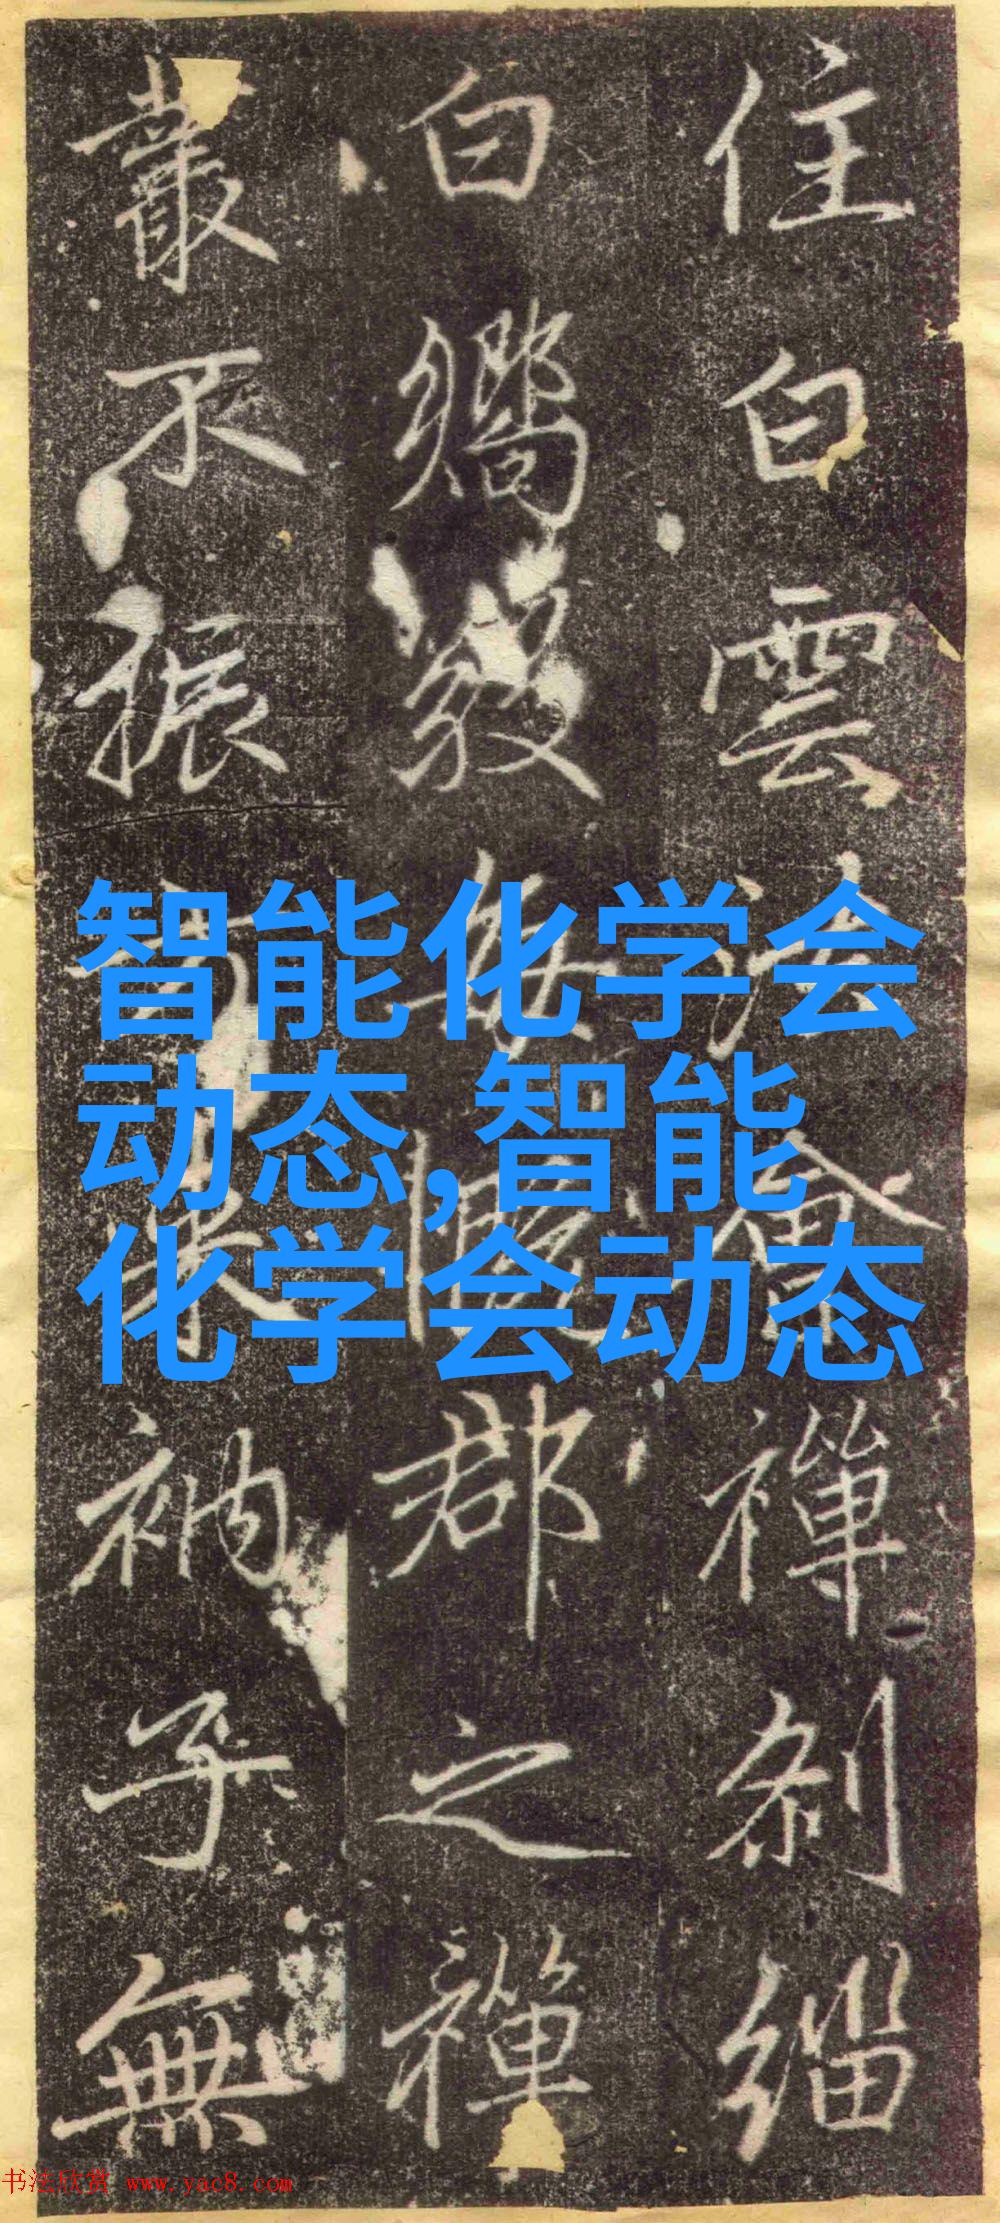 住白雲法禪刹緇
白嚮每慨郡之禪
叢不振方來衲子無
智能化学会
动态,智能
化学会动态
书法欣赏 www.yac8.com